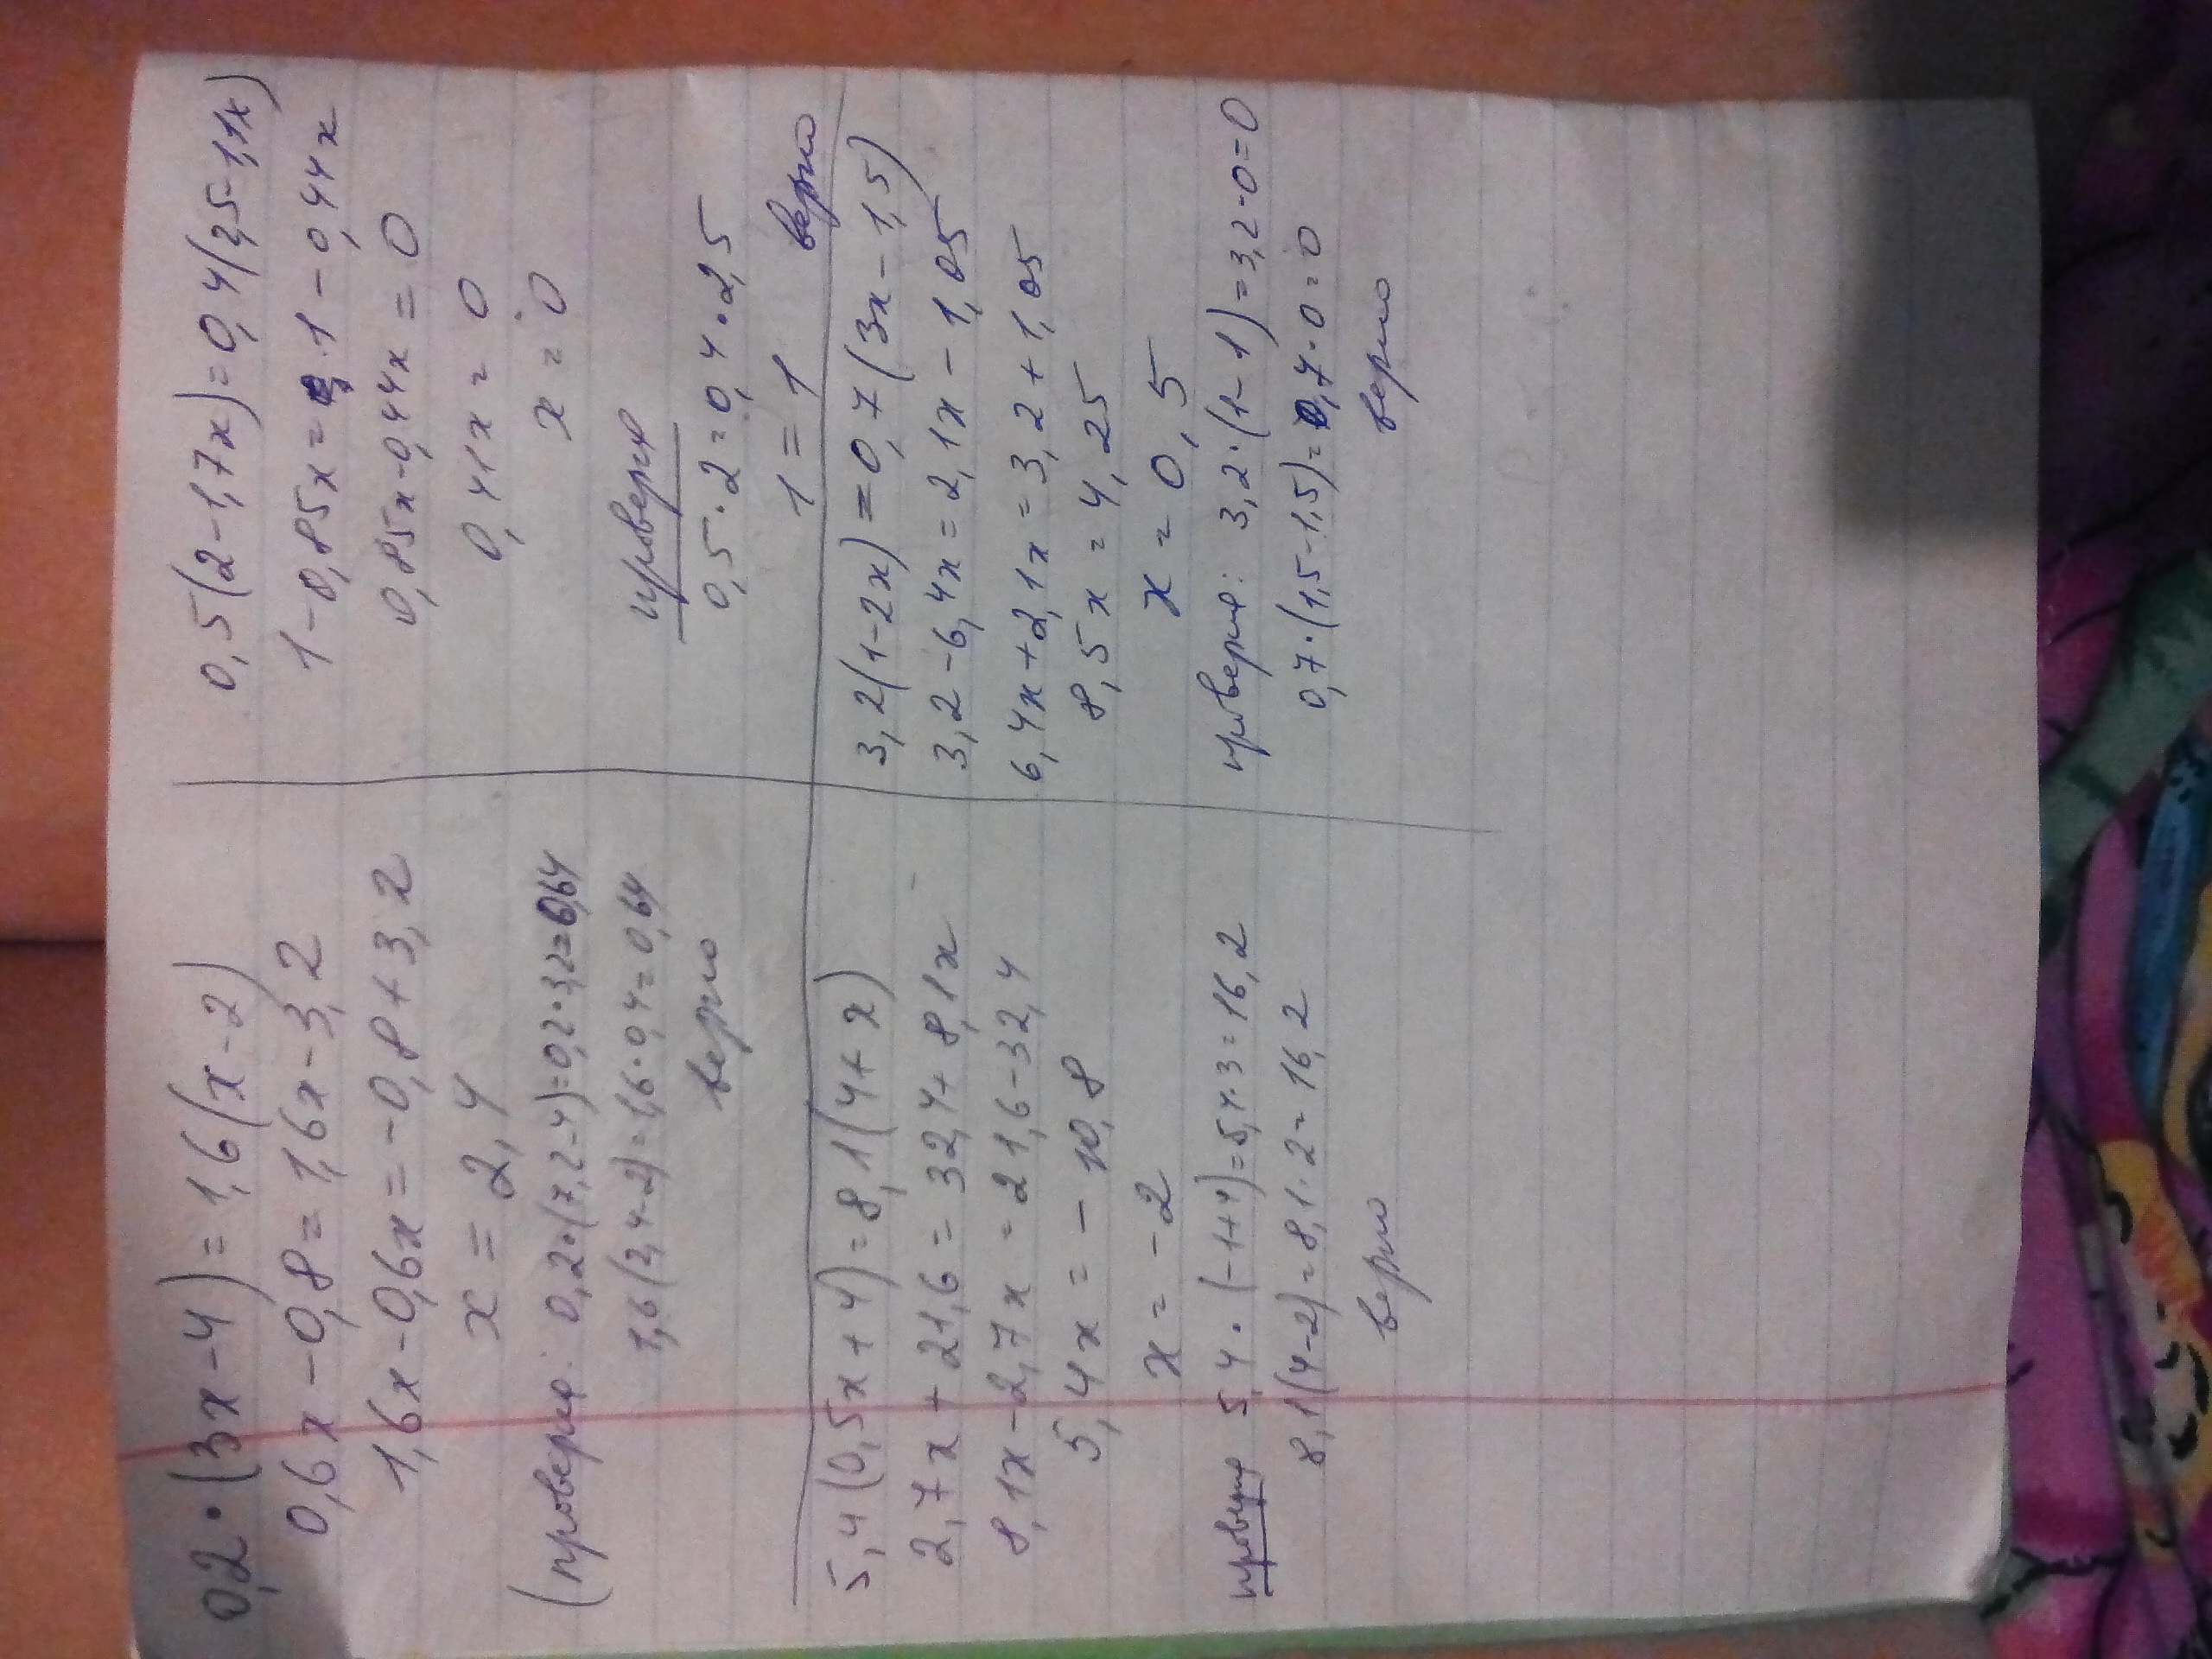 0,2·(3x-4)=1,6(x-2)
0,6x-0,8=1,6x-3,2
1,6x-0,6x=-0,8+3,2
x=2,4
(проверка: 0,2·(7,2-4)=0,2·3,2=0,64
1,6(2,4-2)=1,6·0,4=0,64
верно
0,5(2-1,7x)=0,4(2,5-1,1x)
1-0,85x=1-0,44x
0,85x-0,44x=0
0,41x=0
x=0
проверка
0,5·2=0,4·2,5
1=1
верно
5,4(0,5x+4)=8,1(4+x)
2,7x+21,6=32,4+8,1x
8,1x-2,7x=21,6-32,4
5,4x=-10,8
x=-2
проверка 5,4·(-1+4)=5,4·3=16,2
8,1(4-2)=8,1·2=16,2
верно
3,2(1-2x)=0,7(3x-1,5)
3,2-6,4x=2,1x-1,05
6,4x+2,1x=3,2+1,05
8,5x=4,25
x=0,5
проверка: 3,2·(1-1)=3,2·0=0
0,7·(1,5-1,5)=0,7·0=0
верно